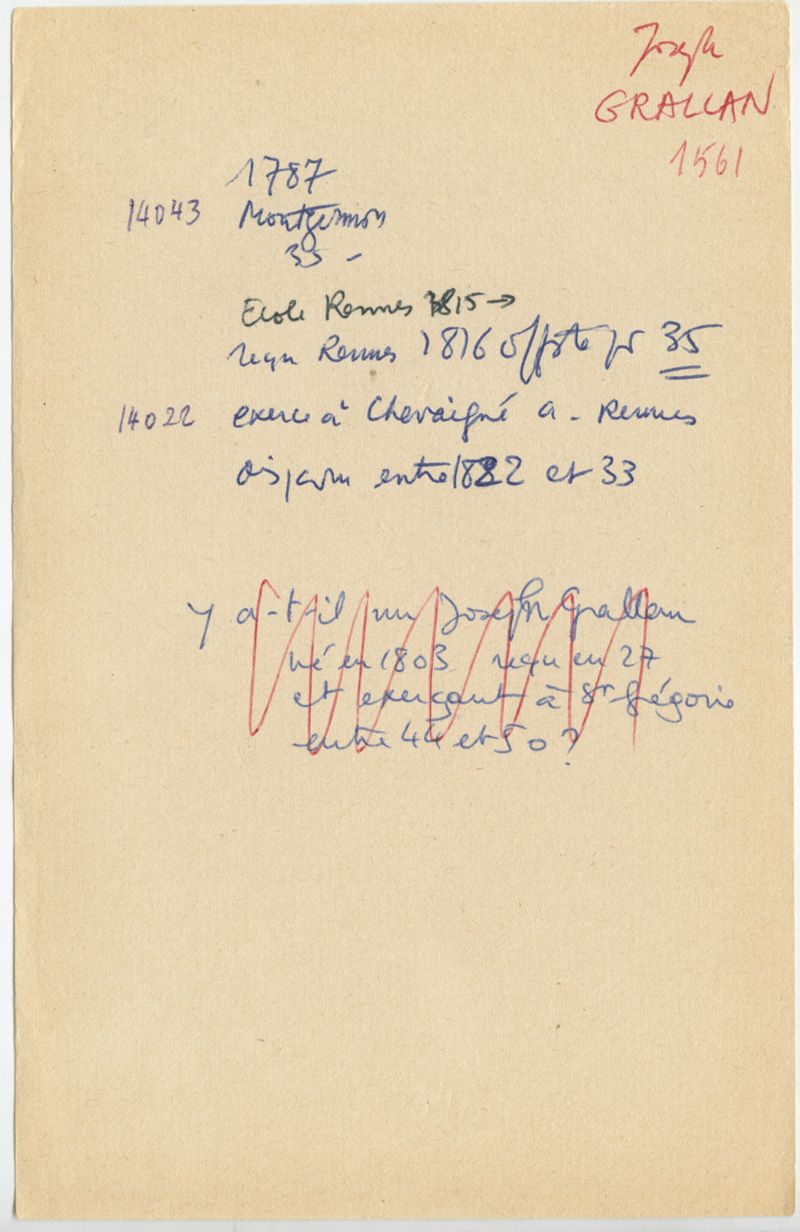 Joseph
GRALLAN
1561
1787
14043 Montgermon
35 -
Ecole Rennes 1815 →
reçu Rennes 1816 off pr 35
14022 exerce à Chevaigné a. Rennes
entre 1832 et 33
Y a-t-il un Joseph Grallan
né en 1803 reçu en 27
et exerçant à St Grégoire
entre 44 et 50 ?